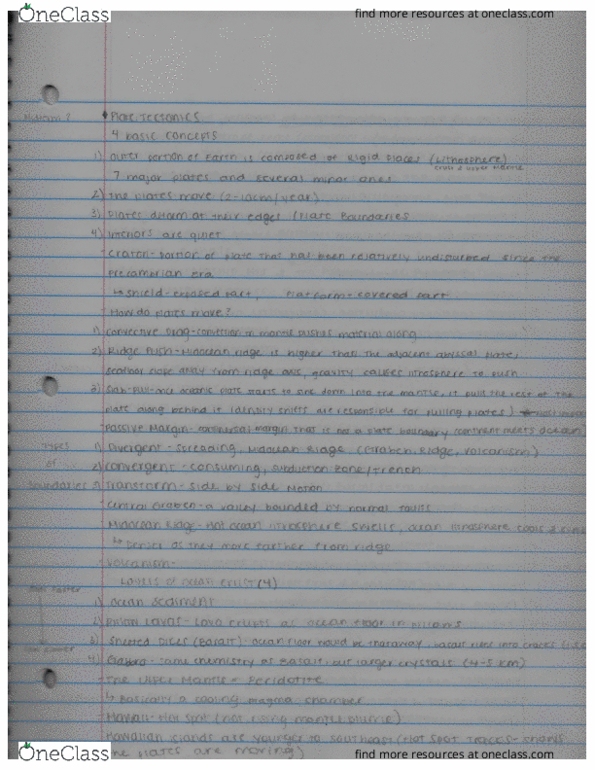 OneClass
find more resources at oneclass.com
Plate Tectonics
4 basic concepts
1) outer portion of Earth is composed of rigid places (Lithosphere)
7 major plates and several minor ones
2) The plates move (2-10cm/year)
3) Plates at their edges (Plate Boundaries
4) Interiors are quiet
Craton - portion of plate that has been relatively undisturbed since the
Precambrian Era
↳ shield - exposed part, platform - covered part
How do plates move?
1) convective drag - convection in mantle pushes material along
2) Ridge Push - Midocean ridge is higher than the adjacent abyssal plate,
seafloor slope away from ridge axis, gravity causes lithosphere to push
3) Slab-Pull - once oceanic plate starts to sink down into the mantle, it pulls the rest of the
plate along behind it (density shifts are responsible for pulling plates)
Passive Margin - continental margin that is not a plate boundary continent meets ocean
Types
of
boundaries
1) Divergent - spreading, Midocean Ridge (Graben, Ridge, volcanism)
2) Convergent - consuming, subduction zone/Trench
3) Transform - side by side motion
Central Graben - a valley bounded by normal faults
Midocean Ridge - hot ocean lithosphere swells, ocean lithosphere cools &
↳ Denser as they move farther from ridge
Volcanism -
Layers of ocean crust (4)
1) ocean sediment
2) Pillow Lavas - Lava erupts as ocean floor in pillows
3) Sheeted Dikes (Basalt) - ocean floor basalt rises into cracks
4) Gabbro - same chemistry as Basalt, but larger crystals (4-5 km)
The Upper Mantle - Peridotite
↳ Basically a cooling magma chamber
Hawaii - Hot spot (not rising mantle plume)
Hawaiian islands are younger to southeast (Hot Spot Tracks - shows
the plates are moving)
OneClass
find more resources at oneclass.com